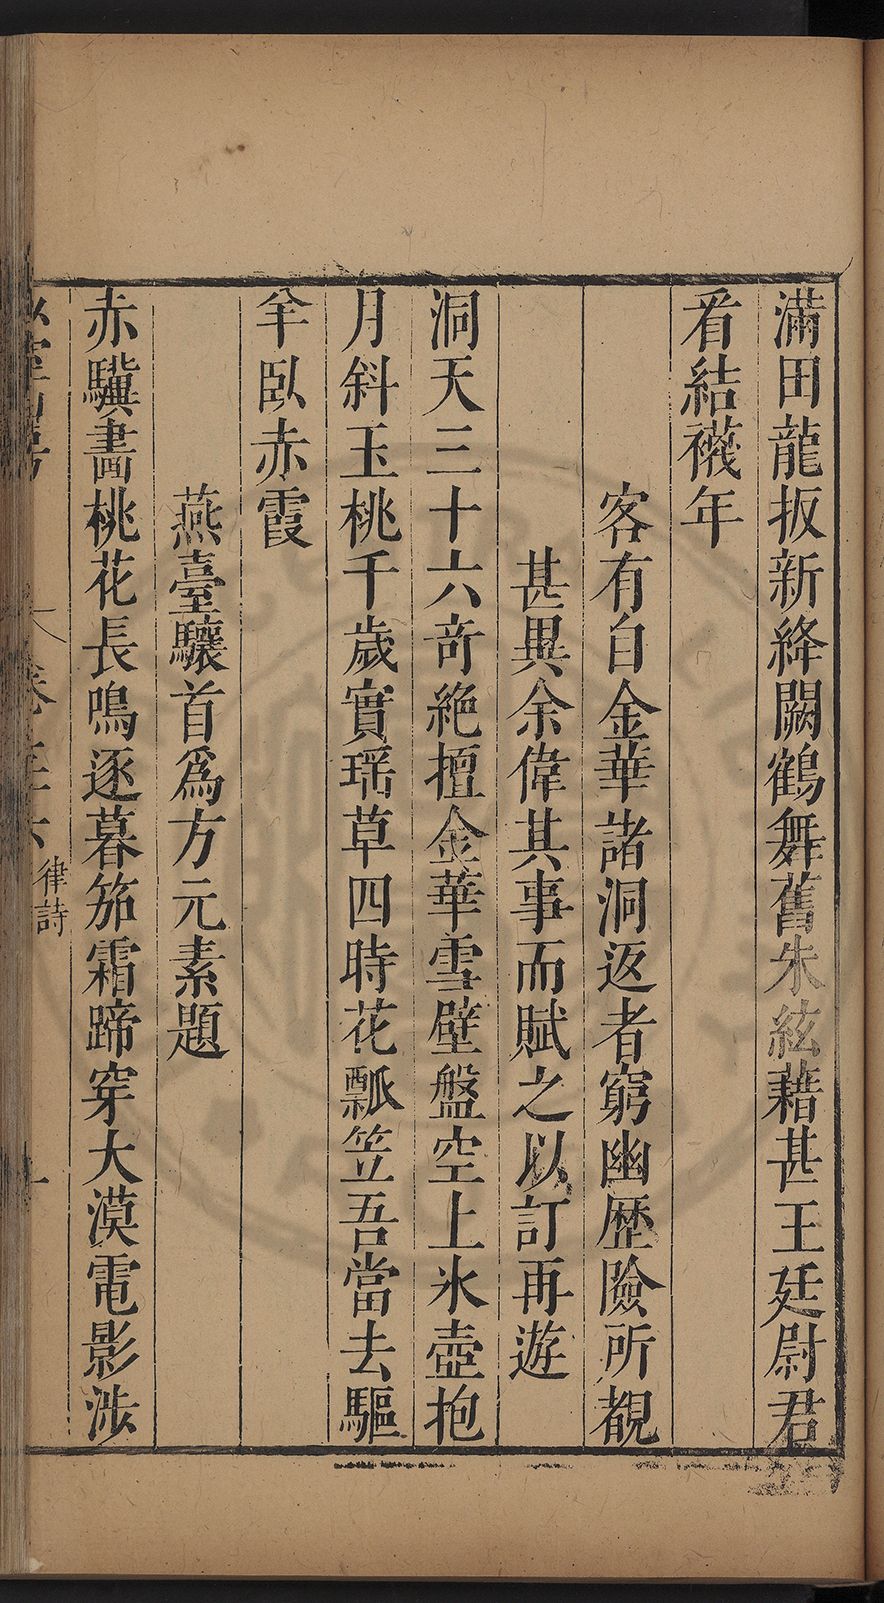 滿田龍扳新絳闕鶴舞舊朱絃藉甚王廷尉君
看結襪年
客有自金華諸洞返者窮幽歴險所覩
甚異余偉其事而賦之以訂再遊
洞天三十六奇絶擅金華雪壁盤空上氷壺抱
月斜玉桃千歲實瑶草四時花瓢笠吾當去驅
羊臥赤霞
燕臺驤首爲方元素題
赤驥畵桃花長鳴逐暮笳霜蹄穿大漠電影渉
律詩